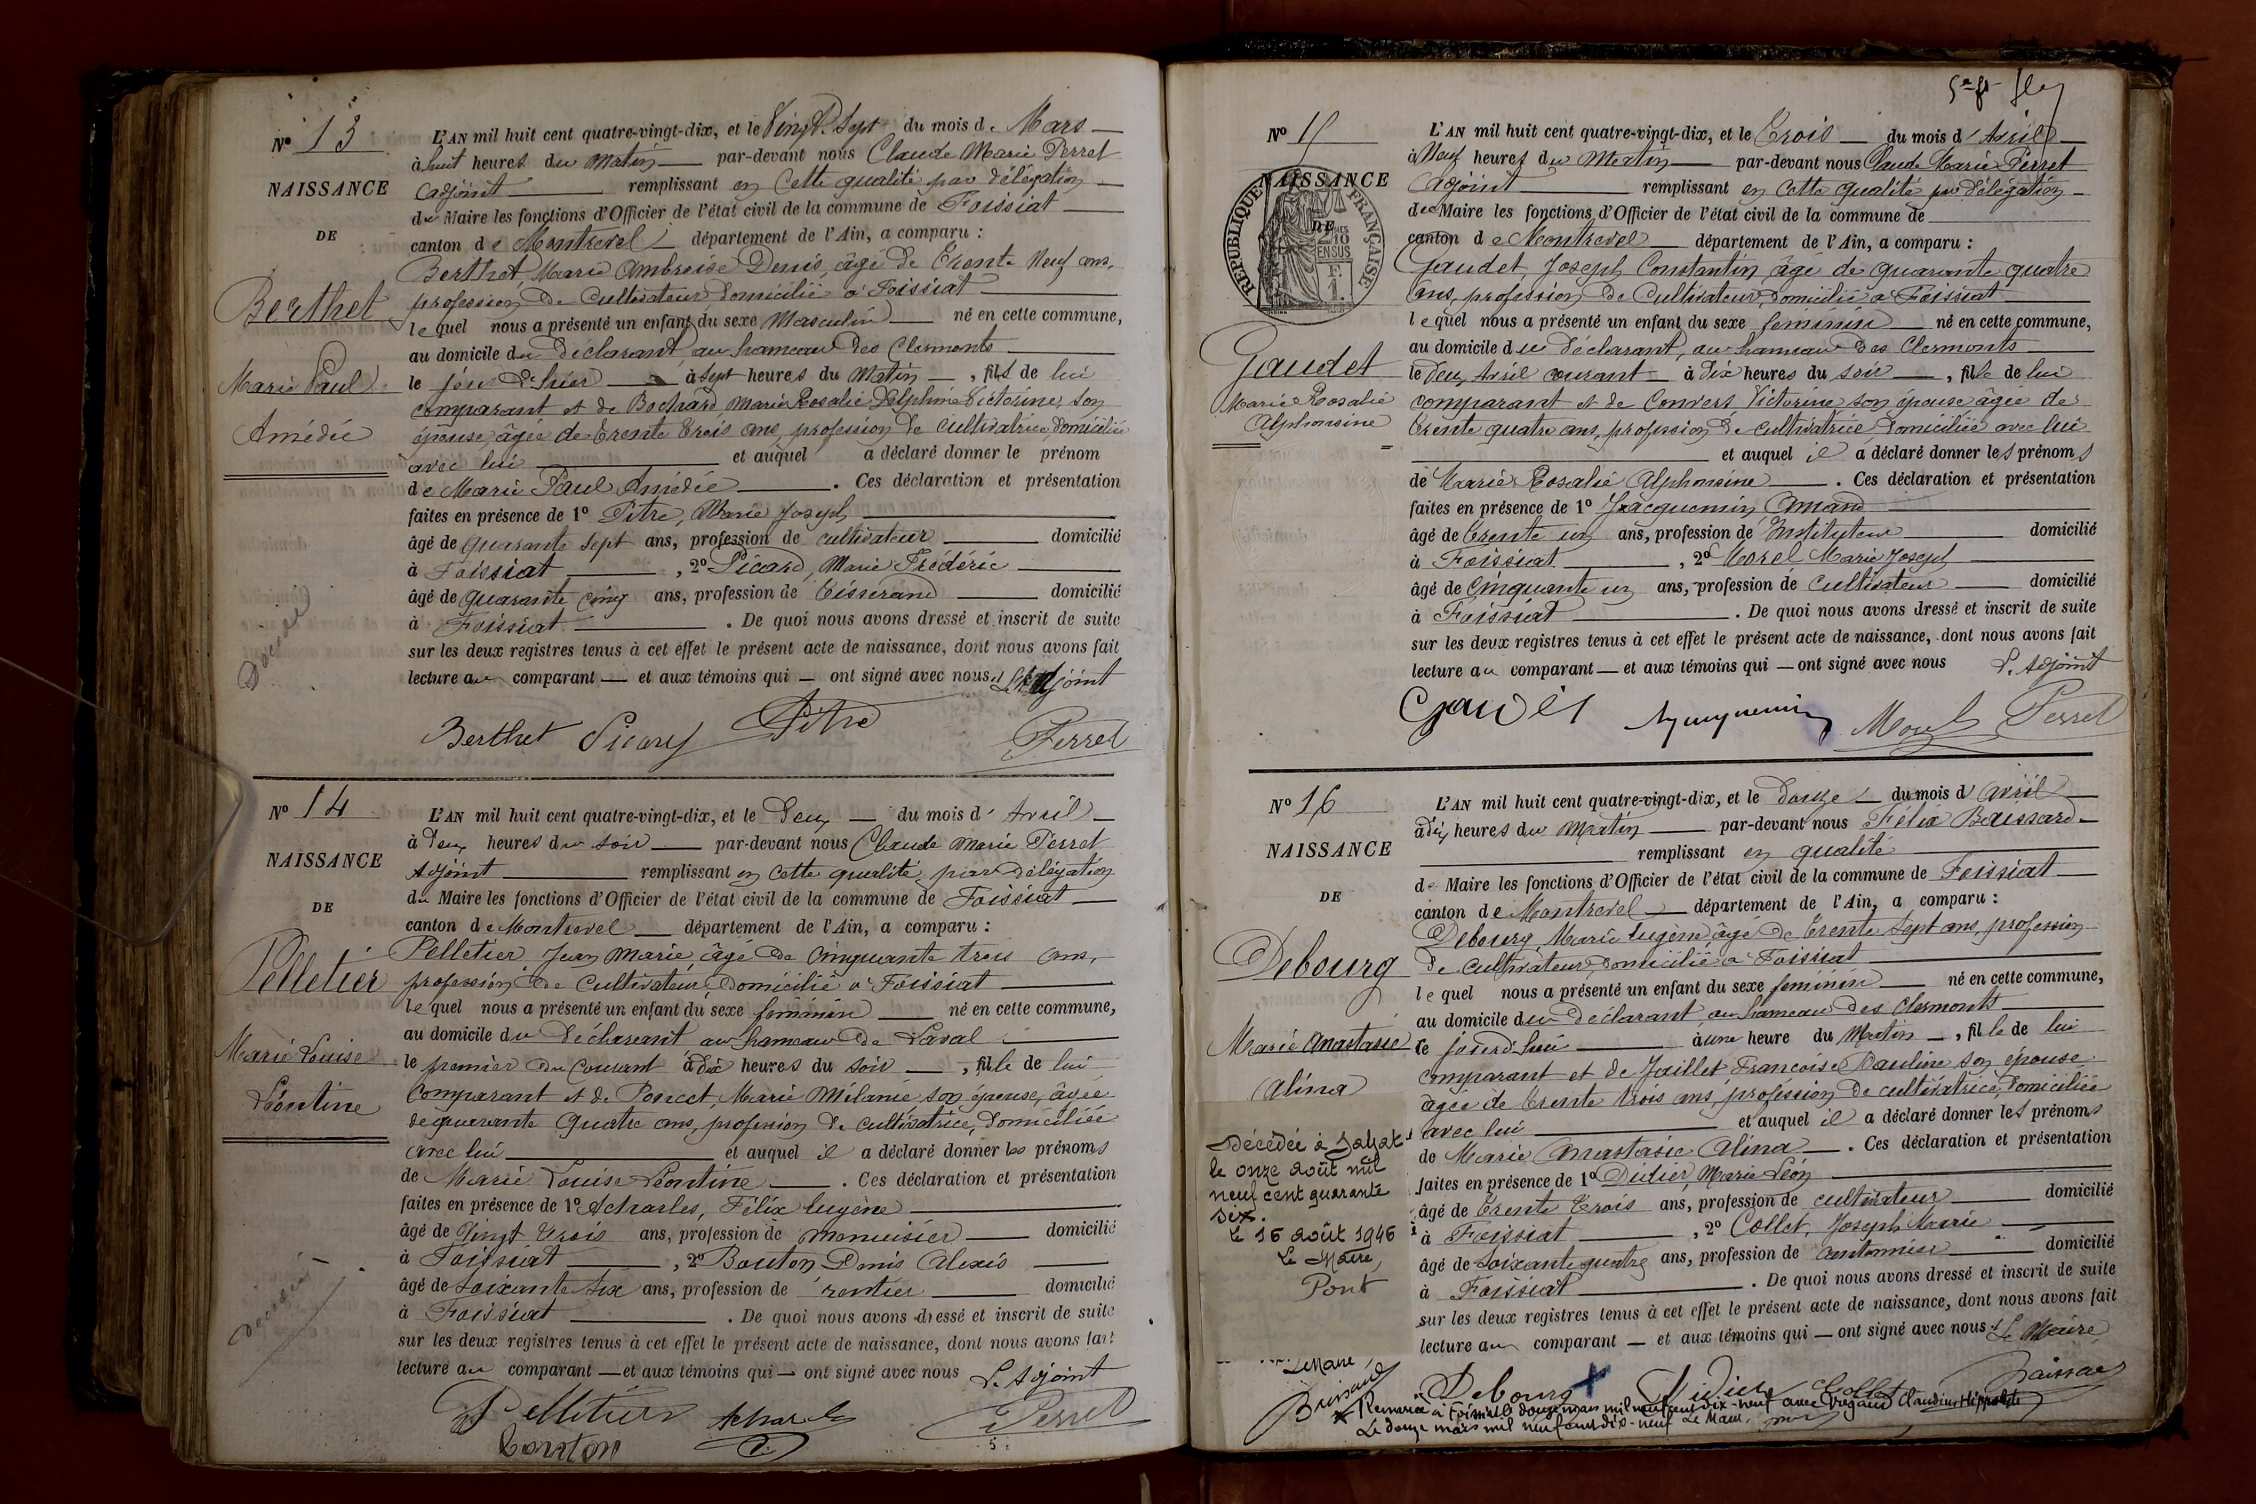 Nº 13
NAISSANCE
DE
Berthet
Marie Paul
Amédée
L'AN mil huit cent quatre-vingt-dix, et le Vingt Sept du mois de Mars
à huit heures du Matin par-devant nous Claude Marie Perret
adjoint remplissant en cette qualité par délégation
du Maire les fonctions d'Officier de l'état civil de la commune de Foissiat
canton de Montrevel département de l'Ain, a comparu :
Berthet, Marie Ambroise Denis, âgé de Trente Neuf ans,
profession de Cultivateur domicilié à Foissiat
lequel nous a présenté un enfant du sexe Masculin né en cette commune,
au domicile du Déclarant au hameau des Clermonts
le jour d'hier à Sept heures du Matin, fils de lui
comparant et de Bochard Marie Rosalie Delphine Victorine, son
épouse, âgée de Trente Trois ans, profession de cultivatrice, domiciliée
avec lui et auquel a déclaré donner le prénom
de Marie Paul Amédée. Ces déclaration et présentation
faites en présence de 1º Pitre, Marie Joseph
âgé de quarante Sept ans, profession de cultivateur domicilié
à Foissiat, 2º Picard, Marie Frédéric
âgé de quarante cinq ans, profession de Tisserand domicilié
à Foissiat. De quoi nous avons dressé et inscrit de suite
sur les deux registres tenus à cet effet le présent acte de naissance, dont nous avons fait
lecture au comparant et aux témoins qui ont signé avec nous L'Adjoint
Berthet Picard Pitre
Perret
Nº 14
NAISSANCE
DE
Pelletier
Marie Louise
Léontine
L'AN mil huit cent quatre-vingt-dix, et le Deux du mois d'Avril
à Deux heures du Soir par-devant nous Claude Marie Perret
Adjoint remplissant en cette qualité par délégation
du Maire les fonctions d'Officier de l'état civil de la commune de Foissiat
canton de Montrevel département de l'Ain, a comparu :
Pelletier Jean Marie âgé de Cinquante trois ans,
profession de Cultivateur, domicilié à Foissiat
lequel nous a présenté un enfant du sexe féminin né en cette commune,
au domicile du Déclarant au hameau de Laval
le premier du Courant à dix heures du soir, fille de lui
Comparant et de Poncet, Marie Mélanie son épouse, âgée
de quarante Quatre ans, profession de cultivatrice, domiciliée
avec lui et auquel il a déclaré donner les prénoms
de Marie Louise Léontine. Ces déclaration et présentation
faites en présence de 1º Acharles, Félix Eugène
âgé de Vingt Trois ans, profession de menuisier domicilié
à Foissiat, 2º Bouton Denis Alexis
âgé de Soixante Six ans, profession de rentier domicilié
à Foissiat. De quoi nous avons dressé et inscrit de suite
sur les deux registres tenus à cet effet le présent acte de naissance, dont nous avons fait
lecture au comparant et aux témoins qui ont signé avec nous L'Adjoint
Pelletier Perret
Bouton
Nº 15
NAISSANCE
DE
REPUBLIQUE FRANÇAISE
Gaudet
Marie Rosalie
Alphonsine
L'AN mil huit cent quatre-vingt-dix, et le Trois du mois d'Avril
à Neuf heures du Matin par-devant nous Claude Marie Perret
Adjoint remplissant en cette qualité par délégation
du Maire les fonctions d'Officier de l'état civil de la commune de
canton de Montrevel département de l'Ain, a comparu :
Gaudet, Joseph Constantin âgé de quarante quatre
ans, profession de Cultivateur, domicilié à Foissiat
lequel nous a présenté un enfant du sexe féminin né en cette commune,
au domicile du Déclarant, au hameau des Clermonts
le Deux Avril courant à Dix heures du soir, fille de lui
comparant et de Convers Victorine son épouse âgée de
trente quatre ans, profession de cultivatrice domiciliée avec lui
et auquel il a déclaré donner les prénoms
de Marie Rosalie Alphonsine. Ces déclaration et présentation
faites en présence de 1º Jacquemin Amand
âgé de trente un ans, profession de Instituteur domicilié
à Foissiat, 2º Morel Marie Joseph
âgé de Cinquante un ans, profession de Cultivateur domicilié
à Foissiat. De quoi nous avons dressé et inscrit de suite
sur les deux registres tenus à cet effet le présent acte de naissance, dont nous avons fait
lecture au comparant et aux témoins qui ont signé avec nous L'Adjoint
Gaudet Morel Perret
Nº 16
NAISSANCE
DE
Debourg
Marie Anastasie
Alina
Décédée à Jayat
le onze août mil
neuf cent quarante
six.
le 16 août 1946
Le Maire,
Pont
L'AN mil huit cent quatre-vingt-dix, et le Douze du mois d'avril
à dix heures du Matin par-devant nous Félix Baissard
remplissant en qualité
de Maire les fonctions d'Officier de l'état civil de la commune de Foissiat
canton de Montrevel département de l'Ain, a comparu :
Debourg, Marie Eugène âgé de Trente Sept ans, profession
de cultivateur, domicilié à Foissiat
lequel nous a présenté un enfant du sexe féminin né en cette commune,
au domicile du Déclarant au hameau des Clermonts
le jourd'hui à une heure du Matin, fille de lui
comparant et de Jaillet Françoise Pauline son épouse
âgée de trente trois ans, profession de cultivatrice, domiciliée
avec lui et auquel il a déclaré donner les prénoms
de Marie Anastasie Alina. Ces déclaration et présentation
faites en présence de 1º Didier, Marie Léon
âgé de Trente Trois ans, profession de cultivateur domicilié
à Foissiat, 2º Collet, Joseph Marie
âgé de Soixante quatre ans, profession de Cantonnier domicilié
à Foissiat. De quoi nous avons dressé et inscrit de suite
sur les deux registres tenus à cet effet le présent acte de naissance, dont nous avons fait
lecture au comparant et aux témoins qui ont signé avec nous Le Maire
Le Maire,
Debourg Didier Collet Baissard
Remariée à Foissiat le douze mars mil neuf cent dix-neuf avec Frégaud Claudius Hippolyte
Le douze mars mil neuf cent dix-neuf Le Maire,